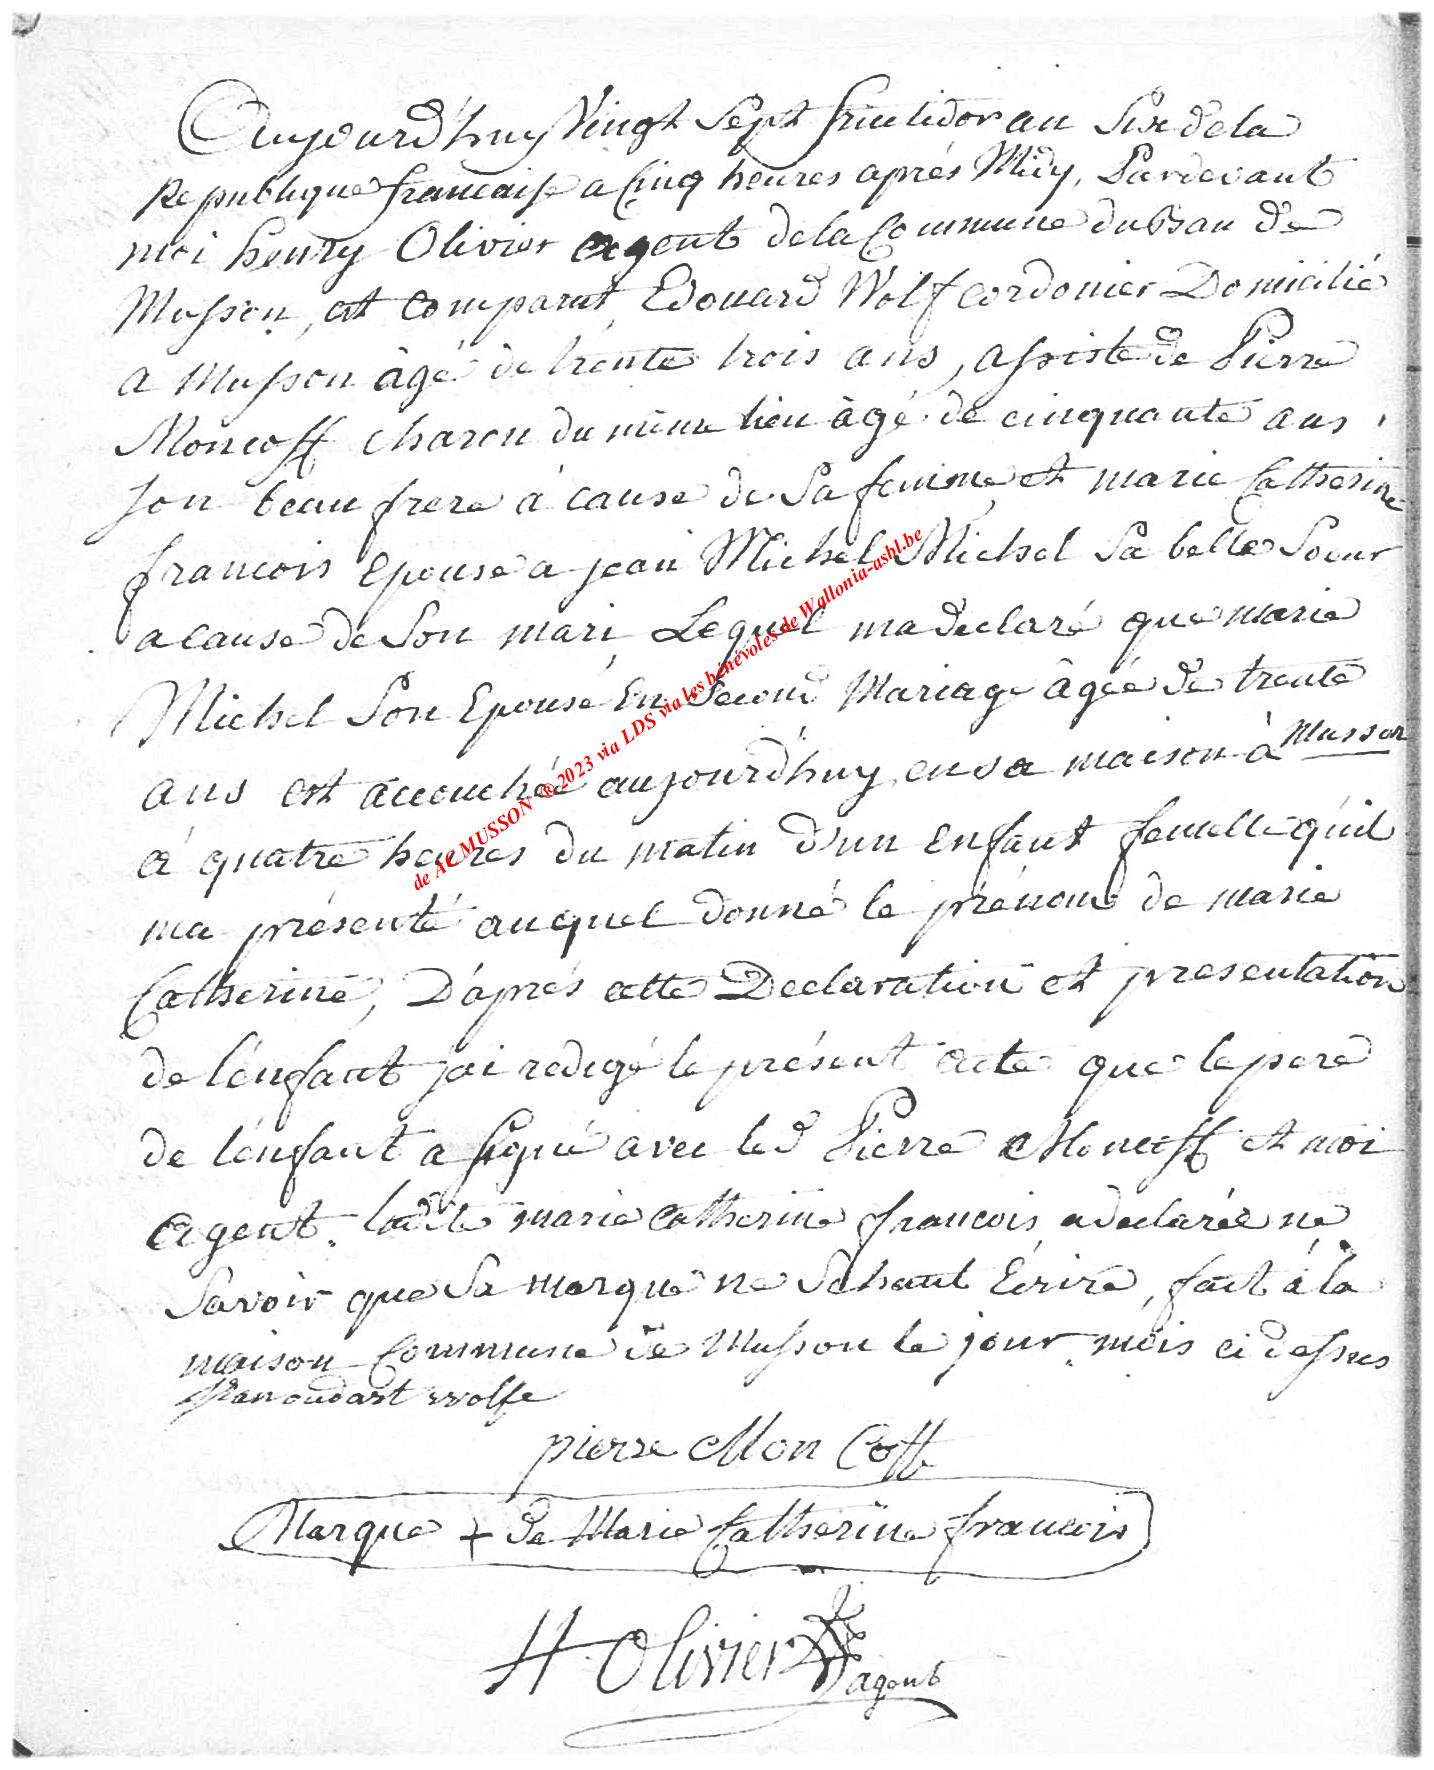 Aujourd'huy Vingt Sept fructidor an Six de la
Republique francaise a Cinq heures aprés Midy, Pardevant
moi henry Olivier agent de la Commune du Ban de
Musson, est comparut Edouard Wolf cordonier Domicilié
a Musson âgé de trente trois ans, assisté de Pierre
Moncoff charon du même lieu âgé de cinquante ans
son beau frere à cause de Sa femme et marie Catherine
francois Epouse a jean Michel Michel Sa belle Soeur
a cause de Son mari, Lequel ma declaré que marie
Michel Son Epouse En Second Mariage âgée de trente
ans est accouchée aujourd'huy en sa maison à Musson
à quatre heures du matin d'un enfant femelle qu'il
ma présenté auquel donné le prénom de marie
Catherine, D'aprés cette Declaration et presentation
de l'enfant j'ai redigé le présent acte que le pere
de l'enfant a signé avec led Pierre Moncoff et moi
agent. ladite marie Catherine francois a declarée ne
Savoir que Sa marque ne Schant Écrire, fait à la
maison Commune de Musson le jour mois ci dessus
oudart wolfe
pierre Mon Coff
Marque + de Marie Catherine francois
H Olivier
agent
de AC MUSSON ®2023 via LDS via les bénévoles de Wallonia-asbl.be